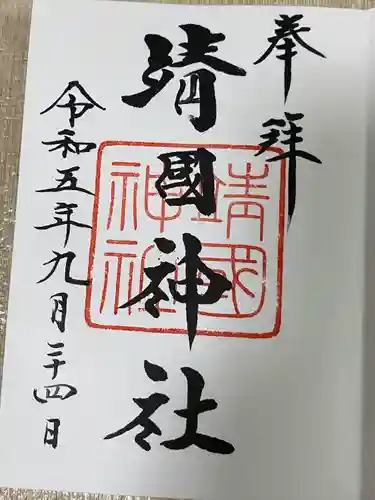 奉拝
靖國神社
靖國
神社
令和五年九月二十四日